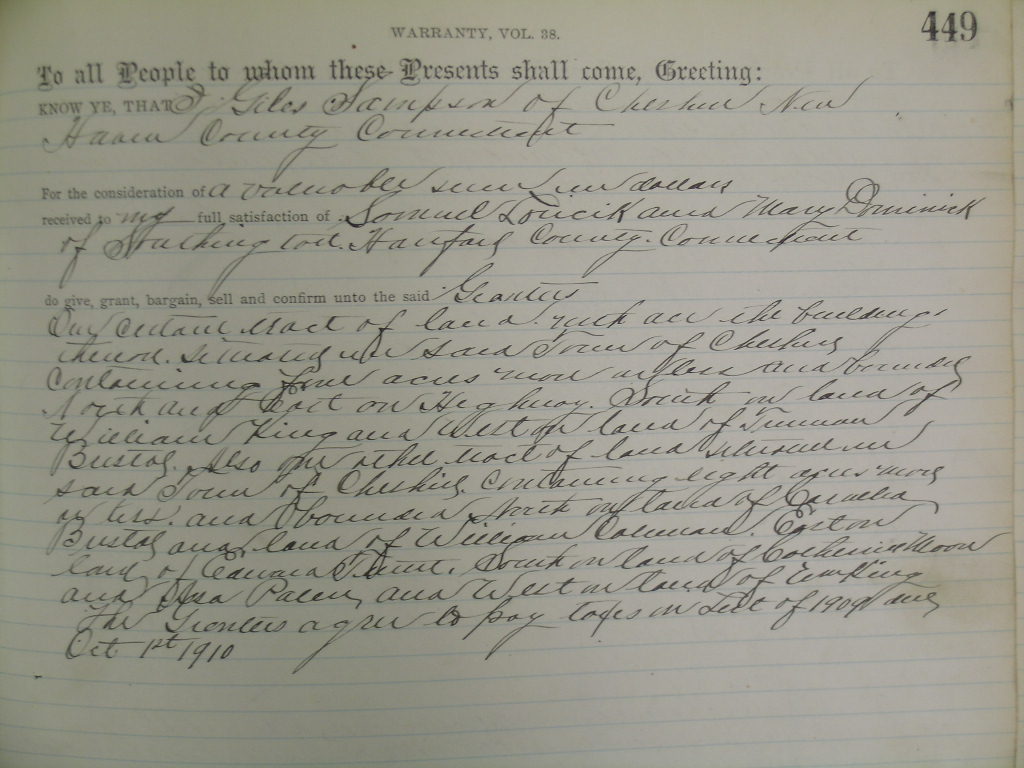 449
WARRANTY, VOL. 38.
To all People to whom these Presents shall come, Greeting:
KNOW YE, THAT I Giles Sampson of Cheshire New
Haven County Connecticut
For the consideration of a valuable sum in dollars
received to my full satisfaction of Samuel and Mary Dominick
of Southington Hartford County Connecticut
do give, grant, bargain, sell and confirm unto the said Grantees
One certain tract of land with all the buildings
thereon. Situated in said Town of Cheshire
Containing four acres more or less and bounded
North and East on Highway. South on land of
William King and West on land of Truman
Bristol. Also one other tract of land situated in
said Town of Cheshire. Containing eight acres more
or less. and bounded North on land of Cornelia
Bristol and land of William Coleman. East on
land of Edward South on land of Catherine Moon
and Asa and West on land of Wm King
The Grantees agree to pay taxes on List of 1909 due
Oct 1st 1910